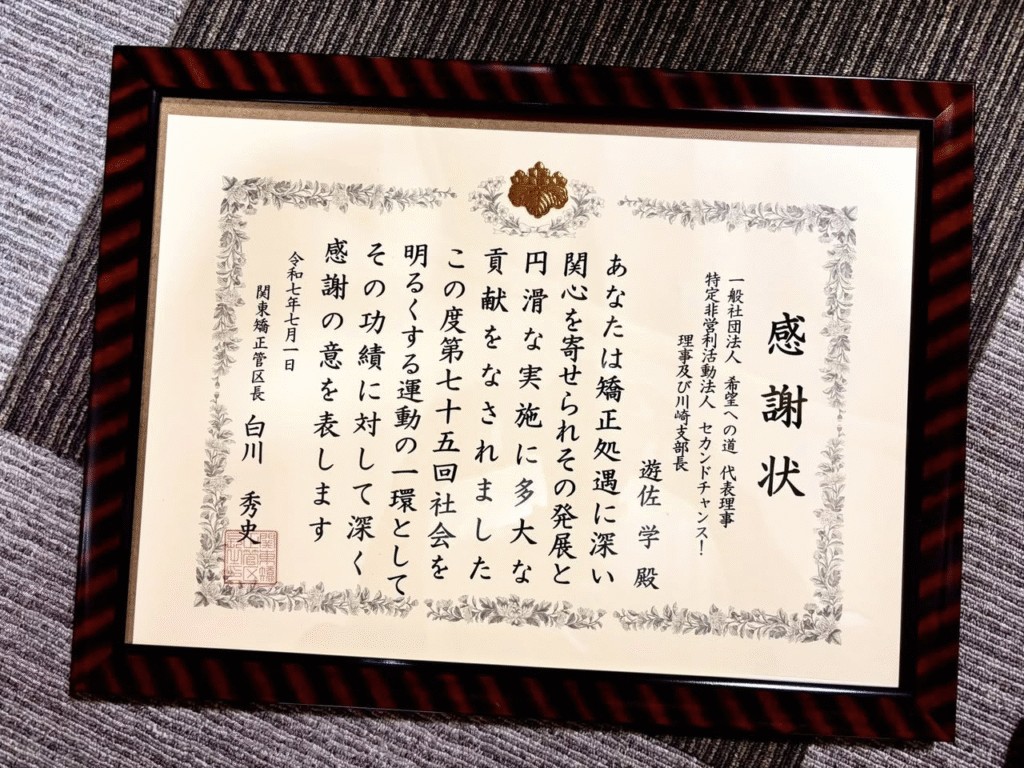 感謝状
一般社団法人 希望への道 代表理事
特定非営利活動法人 セカンドチャンス!
理事及び川崎支部長
遊佐 学 殿
あなたは矯正処遇に深い
関心を寄せられその発展と
円滑な実施に多大な
貢献をなされました
この度第七十五回社会を
明るくする運動の一環として
その功績に対して深く
感謝の意を表します
令和七年七月一日
関東矯正管区長 白川 秀史